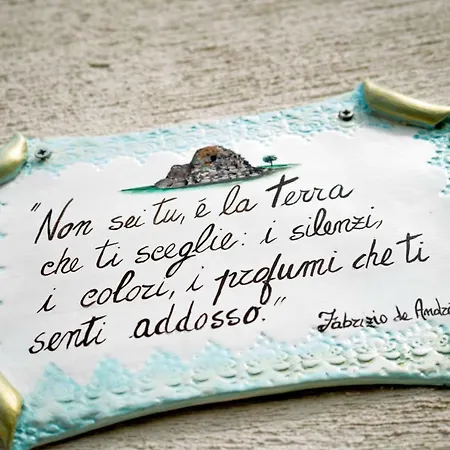 "Non sei tu, é la terra
che ti sceglie: i silenzi,
i colori, i profumi che ti
senti addosso."
Fabrizio de Andrè